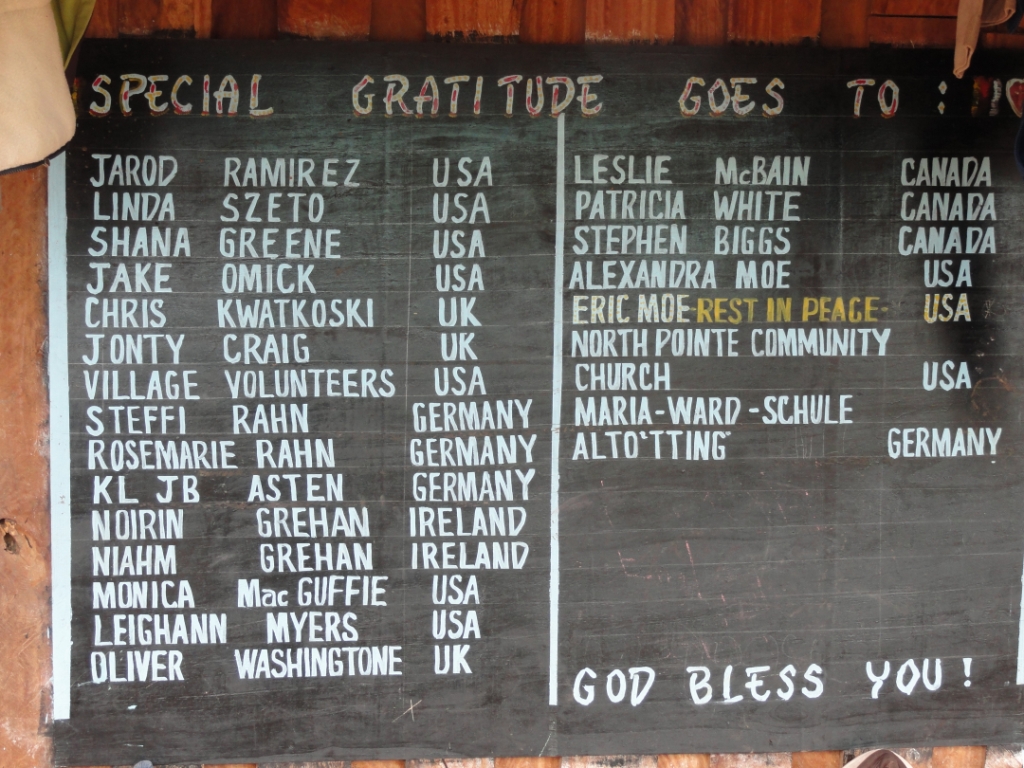 SPECIAL GRATITUDE GOES TO :
JAROD RAMIREZ USA
LINDA SZETO USA
SHANA GREENE USA
JAKE OMICK USA
CHRIS KWATKOSKI UK
JONTY CRAIG UK
VILLAGE VOLUNTEERS USA
STEFFI RAHN GERMANY
ROSEMARIE RAHN GERMANY
KL JB ASTEN GERMANY
NOIRIN GREHAN IRELAND
NIAHM GREHAN IRELAND
MONICA Mac GUFFIE USA
LEIGHANN MYERS USA
OLIVER WASHINGTONE UK
LESLIE McBAIN CANADA
PATRICIA WHITE CANADA
STEPHEN BIGGS CANADA
ALEXANDRA MOE USA
ERIC MOE-REST IN PEACE- USA
NORTH POINTE COMMUNITY
CHURCH USA
MARIA-WARD-SCHULE
ALTO"TTING" GERMANY
GOD BLESS YOU!